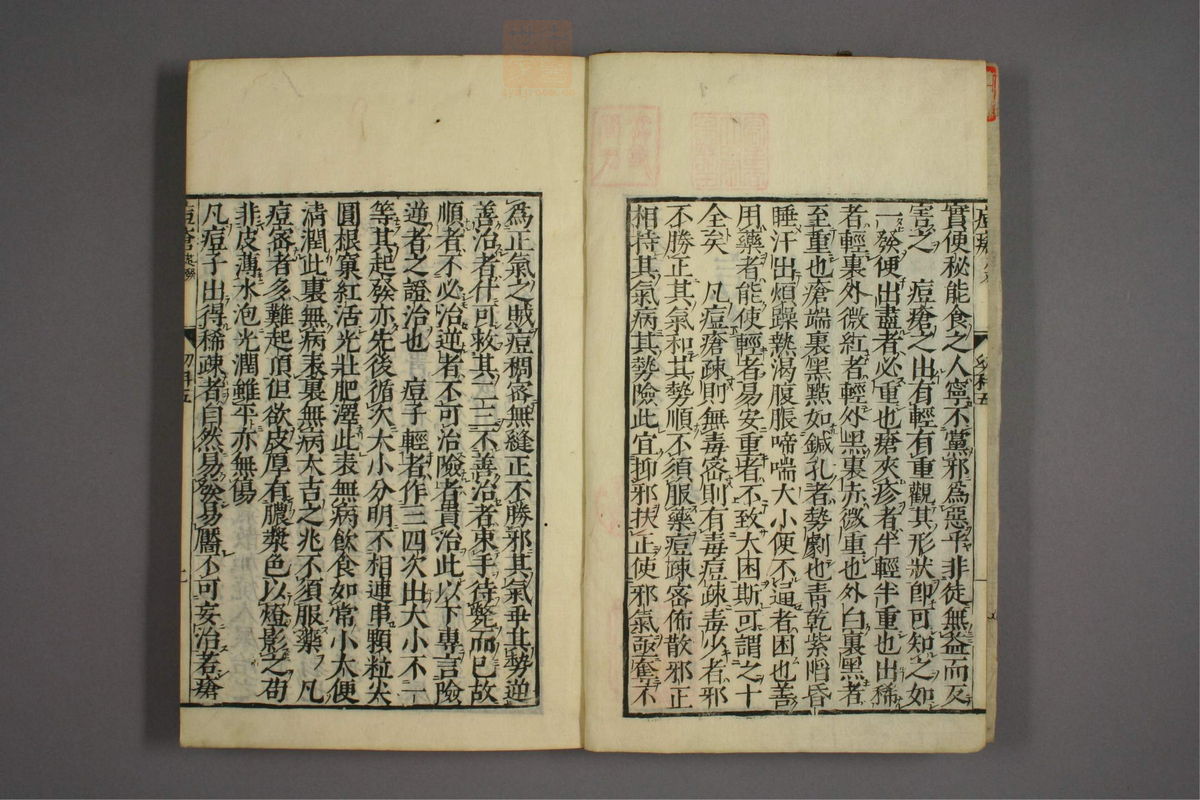 實便秘能食之人寧不黨邪爲惡乎非徒無益而反
害之　痘瘡之出有輕有重觀其形狀卽可知之如
一發便出盡者必重也瘡夾疹者半輕半重也出稀
者輕裏外微紅者輕外黑裏赤微重也外白裏黑者
至重也瘡端裏黑點如鍼孔者勢劇也靑乾紫暗昏
睡汗出煩躁熱渴腹脹啼喘大小便不通者困也善
用藥者能使輕者易安重者不致大困斯可謂之十
全矣　凡痘瘡疎則無毒密則有毒痘疎毒少者邪
不勝正其氣和其勢順不須服藥痘疎密佈散邪正
相持其氣病其勢險此宜抑邪扶正使邪氣亟奪不
幼科五
爲正氣之賊痘稠密無縫正不勝邪其氣乖其勢逆
善治者什可救其二三不善治者束手待斃而已故
順者不必治逆者不可治險者貴治此以下專言險
逆者之證治也　痘子輕者作三四次出大小不一
等其起發亦先後循次大小分明不相連串顆粒尖
圓根窠紅活光壯肥澤此表無病飲食如常小大便
淸潤此裏無病表裏無病大吉之兆不須服藥　凡
痘密者多難起頂但欲皮厚有膿漿色以燈影之苟
非皮薄水泡光潤雖平亦無傷
凡痘子出得稀疎者自然易發易靨不可妄治若瘡
痘瘡
幼科五